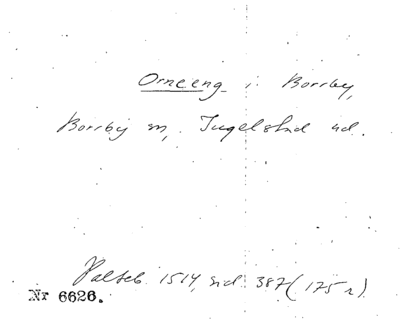 Orneeng i Borrby,
Borrby sn, Ingelstad hd.
Palteb. 1514, sid. 387 (175 r)
Nr 6626.